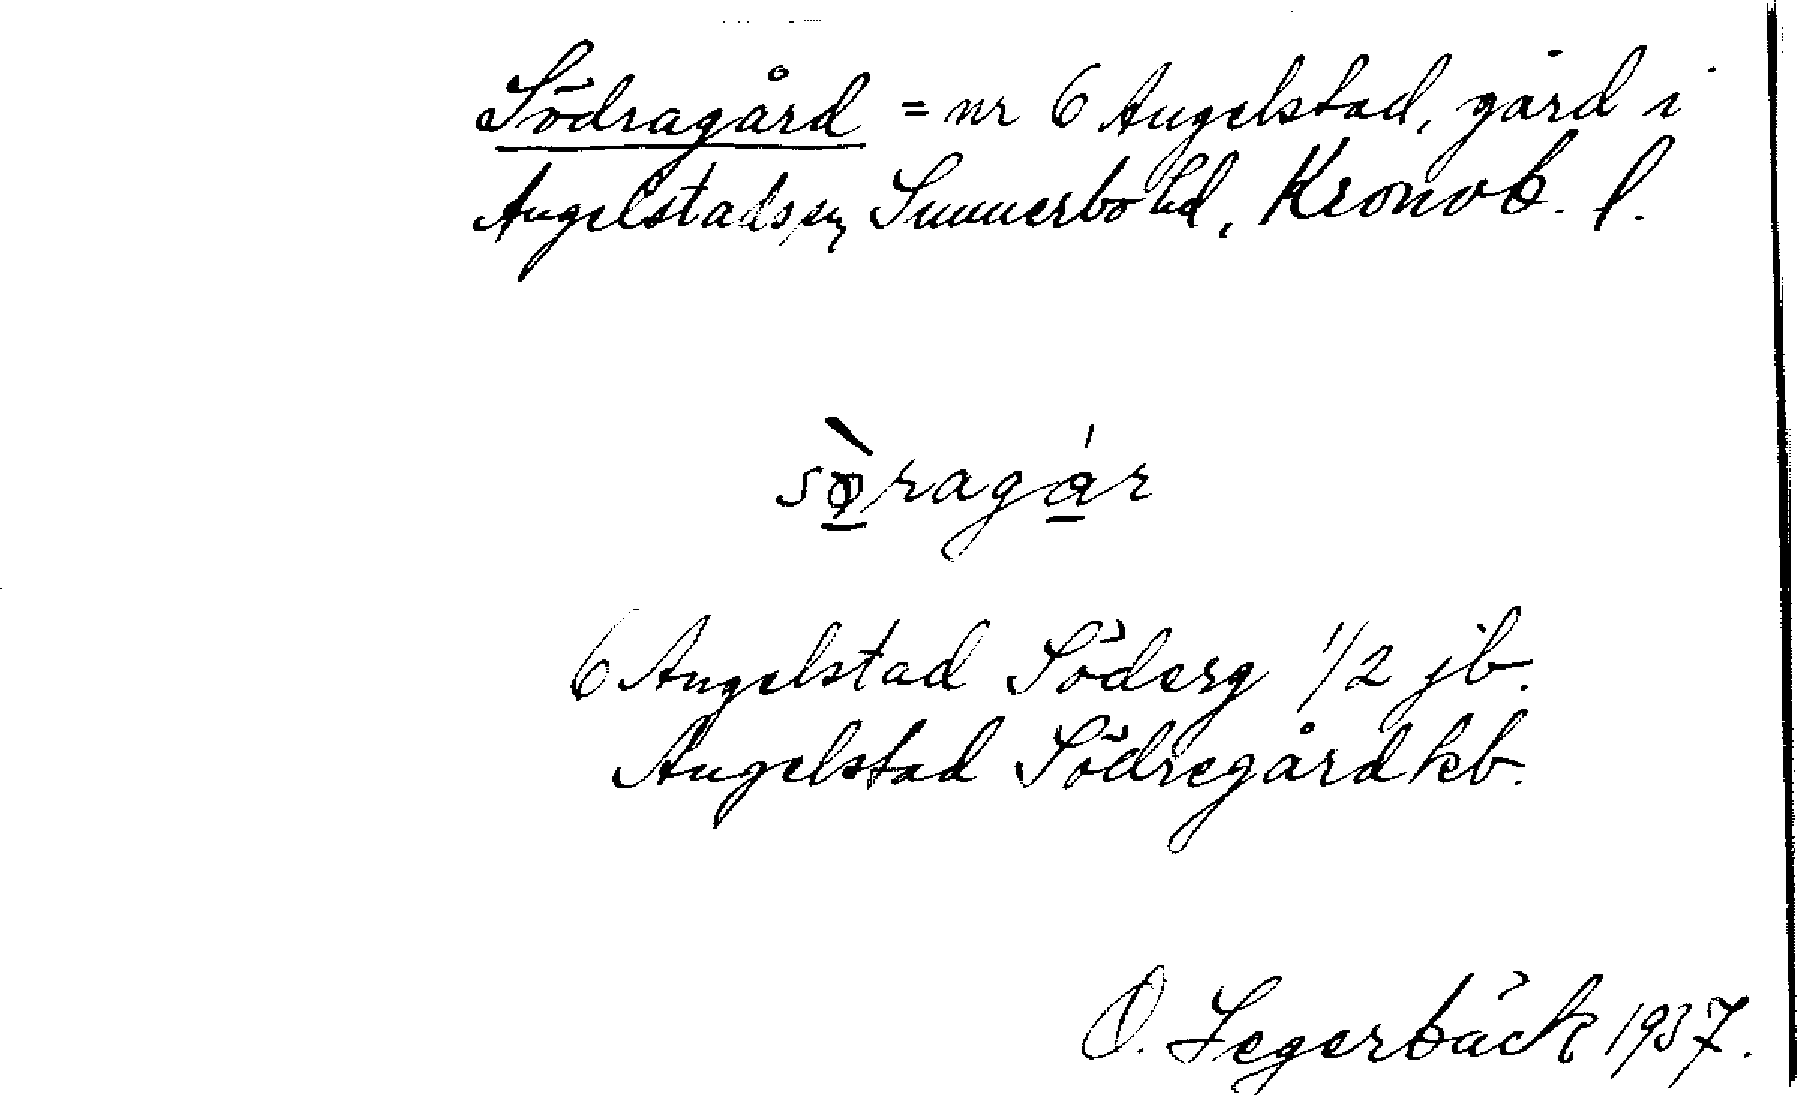 Södragård = nr 6 Angelstad, gård i
Angelstads sn, Sunnerbo hd, Kronob. l.
sø̀ragár
6 Angelstad Söderg 1/2 jb.
Angelstad Södregård kb.
O. Segerbäck 1937.